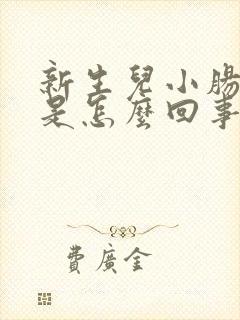 新生兒小腸
是怎麼回事
費廣全